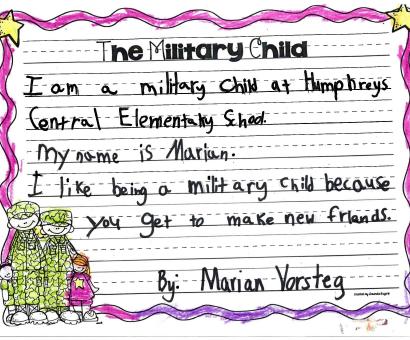 The Military Child
I am a military child at Humphreys
Central Elementary School.
My name is Marian.
I like being a military child because
you get to make new friands.
By: Marian Vorsteg